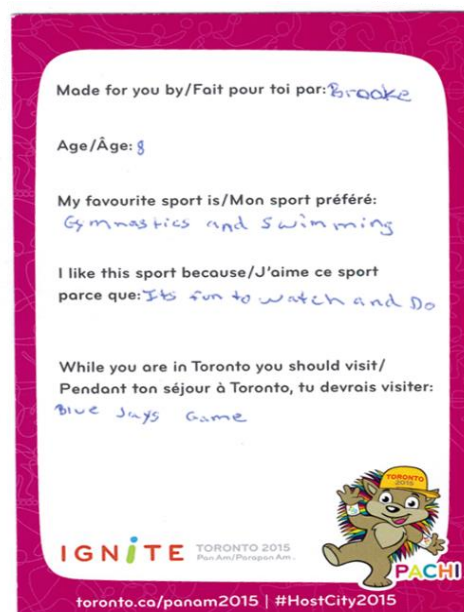 Made for you by/Fait pour toi par: Brooke
Age/Âge: 8
My favourite sport is/Mon sport préféré:
Gymnastics and Swimming
I like this sport because/J'aime ce sport
parce que: Its fun to watch and Do
While you are in Toronto you should visit/
Pendant ton séjour à Toronto, tu devrais visiter:
Blue Jays Game
TORONTO
2015
IGNiTE TORONTO 2015
Pan Am/Parapan Am
PACHI
toronto.ca/panam2015 | #HostCity2015